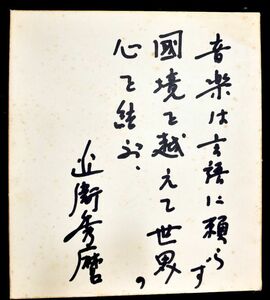 音楽は言語に頼らず
国境を越えて世界の
心を結ぶ、
近衛秀麿